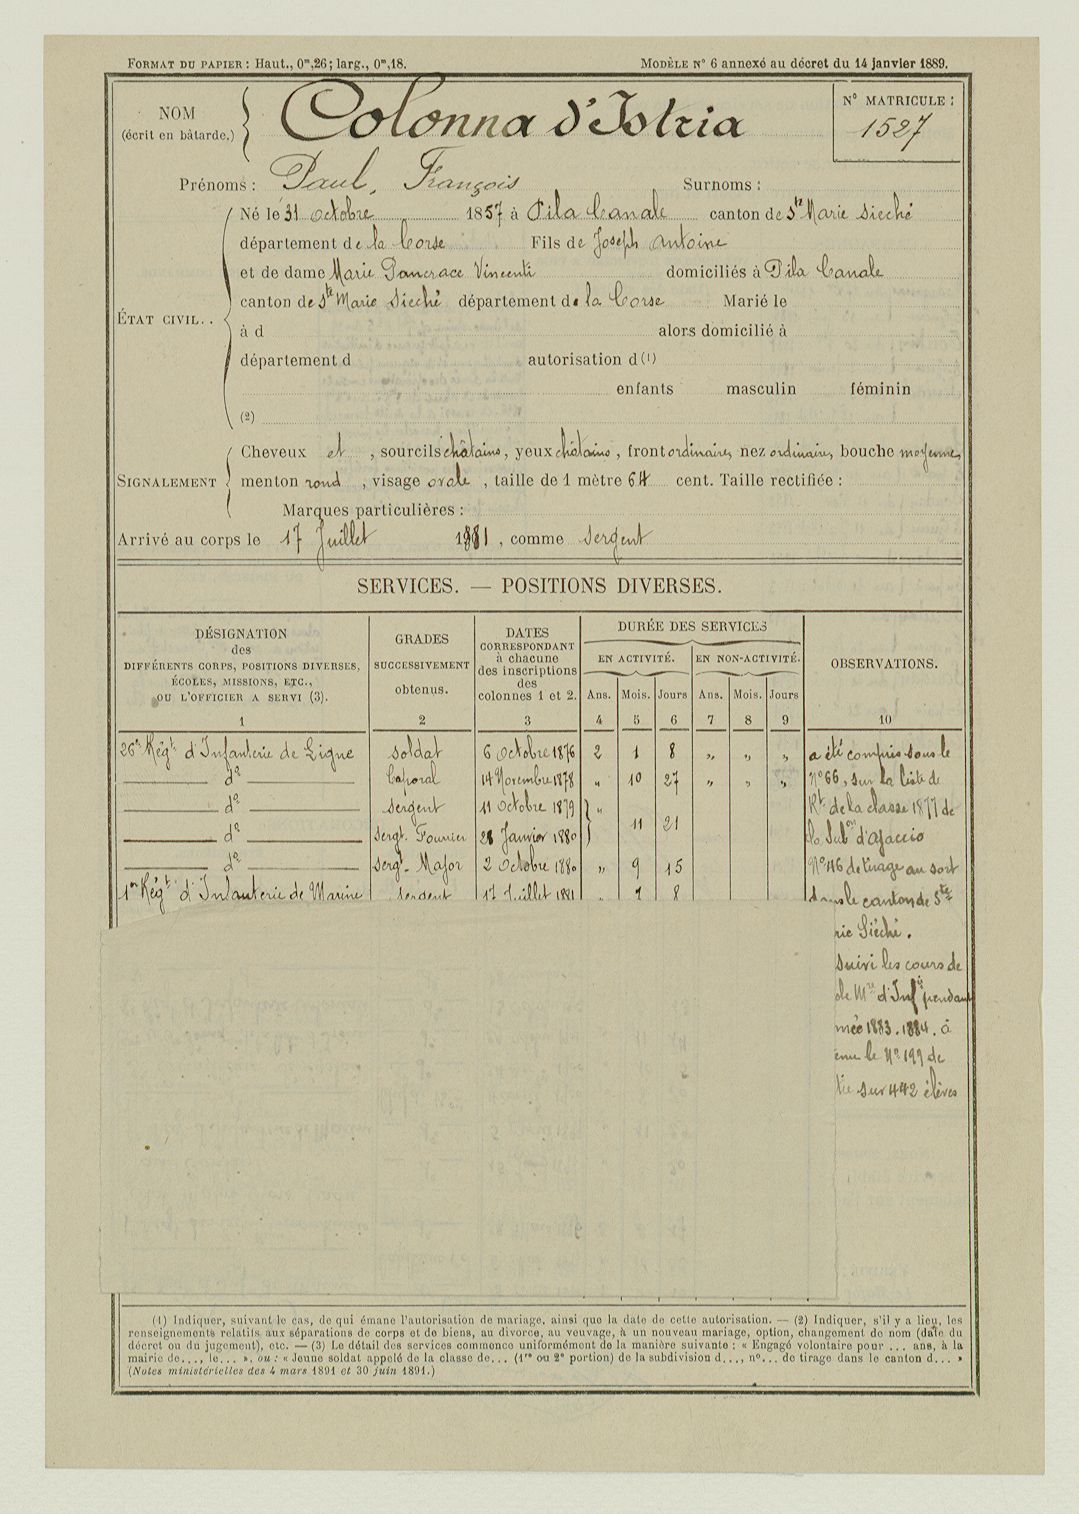 FORMAT DU PAPIER : Haut., 0m,26; larg., 0m,18.
MODÈLE N° 6 annexé au décret du 14 janvier 1889.
NOM
(écrit en bâtarde.)
Colonna d'Istria
N° MATRICULE :
1527
Prénoms : Paul, François Surnoms :
ÉTAT CIVIL. .
Né le 31 octobre 1857 à Pila Canale canton de Ste Marie Sicché
département de la Corse Fils de Joseph Antoine
et de dame Marie Pancrace Vincenti domiciliés à Pila Canale
canton de Ste Marie Sicché département de la Corse Marié le
à d alors domicilié à
département d autorisation d (1)
enfants masculin féminin
(2)
SIGNALEMENT
Cheveux et , sourcils châtains, yeux châtains, front ordinaire, nez ordinaire, bouche moyenne,
menton rond , visage ovale , taille de 1 mètre 64 cent. Taille rectifiée :
Marques particulières :
Arrivé au corps le 17 Juillet 1881 , comme sergent
SERVICES. — POSITIONS DIVERSES.
DÉSIGNATION
des
DIFFÉRENTS CORPS, POSITIONS DIVERSES,
ÉCOLES, MISSIONS, ETC.,
OU L'OFFICIER A SERVI (3).
GRADES
SUCCESSIVEMENT
obtenus.
DATES
CORRESPONDANT
à chacune
des inscriptions
des
colonnes 1 et 2.
DURÉE DES SERVICES
EN ACTIVITÉ. EN NON-ACTIVITÉ.
Ans. Mois. Jours Ans. Mois. Jours
OBSERVATIONS.
1 2 3 4 5 6 7 8 9 10
26e Régt d'Infanterie de Ligne soldat 6 octobre 1876 2 1 8 " " "
do Caporal 14 Novembre 1878 " 10 27 " " "
do sergent 11 octobre 1879 "
do sergt Fourrier 28 Janvier 1880 11 21
do sergt Major 2 octobre 1880 " 9 15
1er Régt d'Infanterie de Marine sergent 17 Juillet 1881 " 7 8
a été compris sous le
N° 66, sur la liste de
Rt de la classe 1877 de
la Subon d'Ajaccio
N° 46 de tirage au sort
dans le canton de Ste
rie Siéché.
suivi les cours de
ole Mre d'Infie pendant
née 1883. 1884. à
enu le N° 199 de
tie sur 442 élèves
(1) Indiquer, suivant le cas, de qui émane l'autorisation de mariage, ainsi que la date de cette autorisation. — (2) Indiquer, s'il y a lieu, les
renseignements relatifs aux séparations de corps et de biens, au divorce, au veuvage, à un nouveau mariage, option, changement de nom (date du
décret ou du jugement), etc. — (3) Le détail des services commence uniformément de la manière suivante : « Engagé volontaire pour ... ans, à la
mairie de..., le... », ou : « Jeune soldat appelé de la classe de... (1re ou 2e portion) de la subdivision d..., n°... de tirage dans le canton d... »
(Notes ministérielles des 4 mars 1891 et 30 juin 1891.)